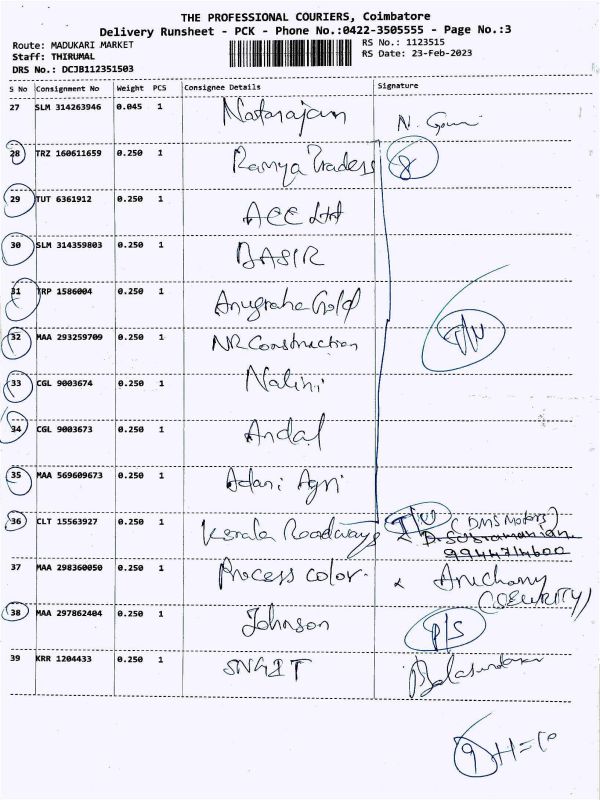 THE PROFESSIONAL COURIERS, Coimbatore
Delivery Runsheet - PCK - Phone No.:0422-3505555 - Page No.:3
Route: MADUKARI MARKET
Staff: THIRUMAL
DRS No.: DCJB112351503
RS No.: 1123515
RS Date: 23-Feb-2023
S No Consignment No Weight PCS Consignee Details Signature
27 SLM 314263946 0.045 1 Natarajan N. Gowri
28 TRZ 160611659 0.250 1 Ramya Traders 8
29 TUT 6361912 0.250 1 ACE Ltd
30 SLM 314359803 0.250 1 BASIR
31 TRP 1586004 0.250 1 Anugraha Gold
32 MAA 293259709 0.250 1 NR Construction T/N
33 CGL 9003674 0.250 1 Nalini
34 CGL 9003673 0.250 1 Andal
35 MAA 569609673 0.250 1 Adani Agri
36 CLT 15563927 0.250 1 Kerala Roadways (DMS Motors)
D. Subramanian
9944714600
37 MAA 298360050 0.250 1 Process color.
(SECURITY)
38 MAA 297862404 0.250 1 Johnson P/S
39 KRR 1204433 0.250 1
9